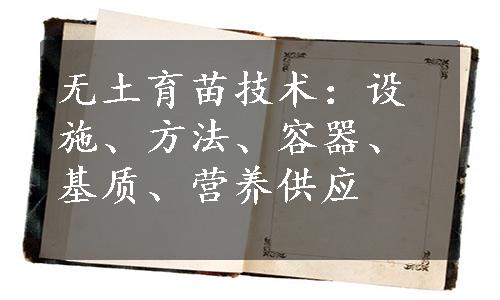 无土育苗技术：设
施、方法、容器、
基质、营养供应